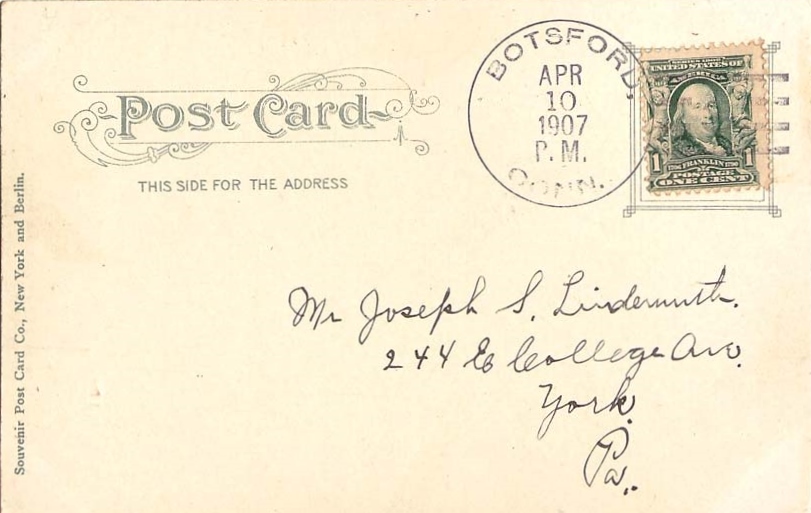 Post Card
THIS SIDE FOR THE ADDRESS
BOTSFORD,
APR
10
1907
P. M.
CONN.
SERIES 1902
UNITED STATES OF
AMERICA
1 1706 FRANKLIN 1790 1
POSTAGE
ONE CENT
Mr Joseph S. Lindemuth.
244 E College Ave.
York.
Pa.
Souvenir Post Card Co., New York and Berlin.